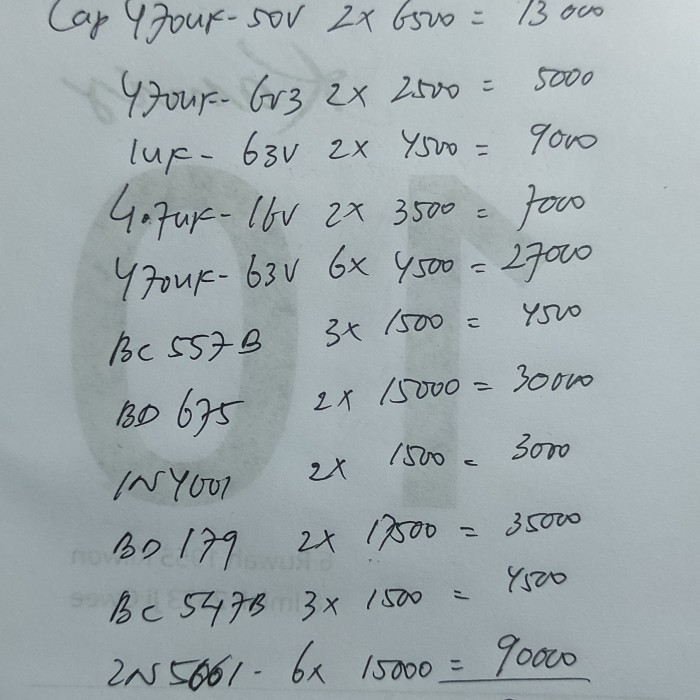 Cap 470uF - 50V 2x 6500 = 13000
470uF - 6v3 2x 2500 = 5000
1uF - 63V 2x 4500 = 9000
4.7uF - 16V 2x 3500 = 7000
470uF - 63V 6x 4500 = 27000
BC 557B 3x 1500 = 4500
BD 675 2x 15000 = 30000
1N4001 2x 1500 = 3000
BD 179 2x 17500 = 35000
BC 547B 3x 1500 = 4500
2N5661 - 6x 15000 = 90000